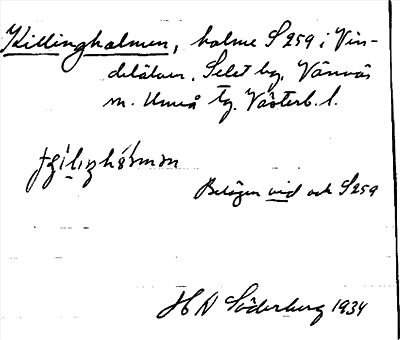 Killingholmen, holme S 259 i Vin-
delälven. Selet by, Vännäs
sn. Umeå tg. Västerb. l.
Belägen vid och S 259
HN Söderberg 1934